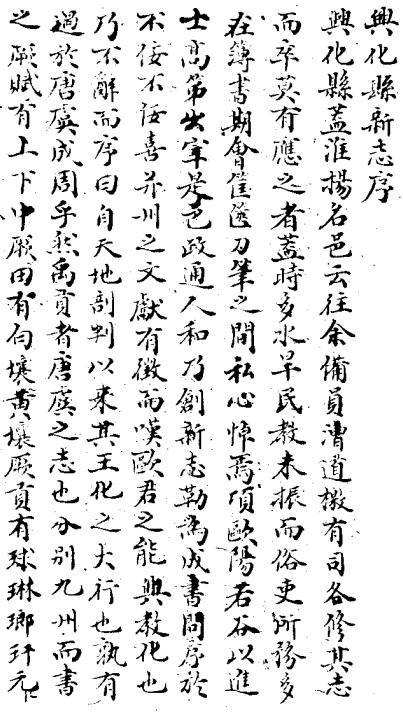 興化縣新志序
興化縣蓋淮揚名邑云往余備員漕道檄有司各修其志
而卒莫有應之者蓋時多水旱民教未振而俗吏所務多
在簿書期會筐篋刀筆之間私心悼焉頃歐陽若谷以進
士高第出宰是邑政通人和乃創新志勒為成書問序於
不佞不佞喜茲州之文獻有徵而嘆歐君之能興教化也
乃不辭而序曰自天地剖判以來其王化之大行也孰有
過於唐虞成周乎然禹貢者唐虞之志也分别九州而書
之厥賦有上下中厥田有白壤黄壤厥貢有球琳瑯玕元